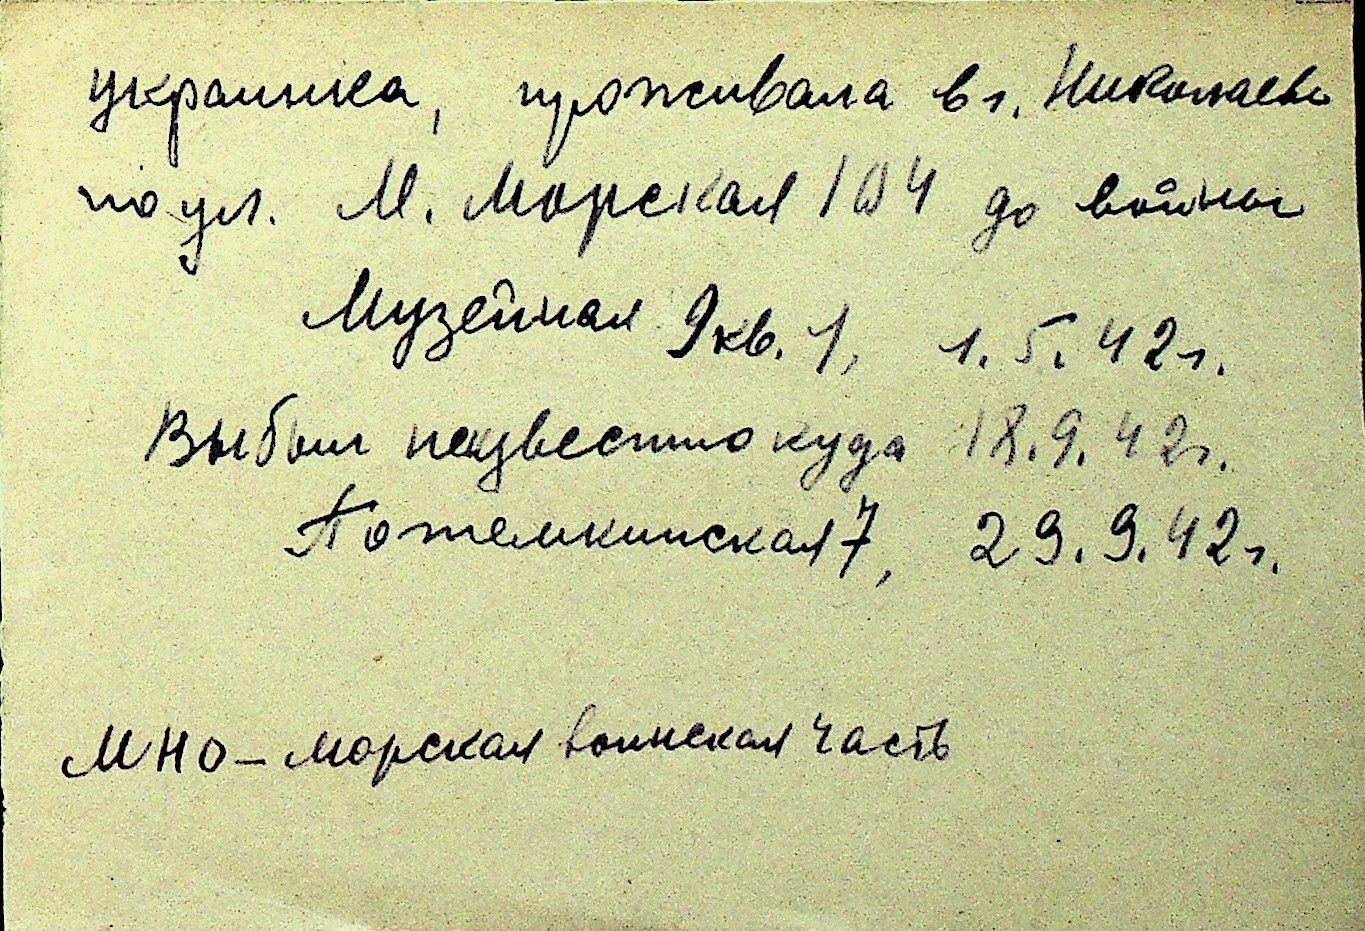 украинка, проживала в г. Николаеве
по ул. М. Морская 104 до войны
Музейная 9 кв. 1, 1.5.42г.
Выбыл неизвестно куда 18.9.42г.
Потемкинская 7, 29.9.42г.
МНО – морская воинская часть